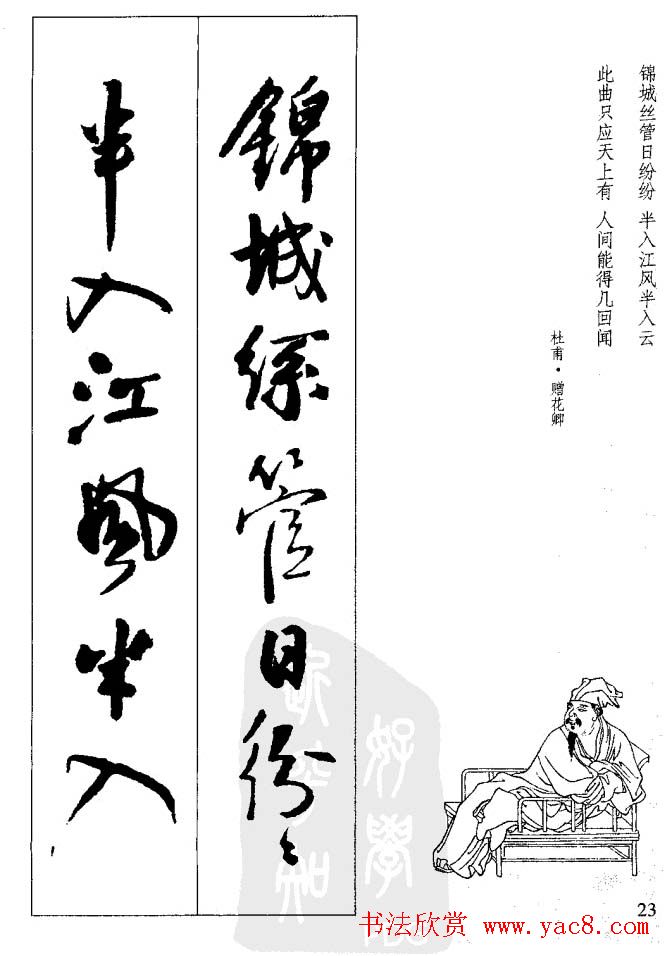 锦城丝管日纷纷 半入江风半入云
此曲只应天上有 人间能得几回闻
杜甫·赠花卿
錦城絲管日紛々
半入江風半入
23
书法欣赏 www.yac8.com